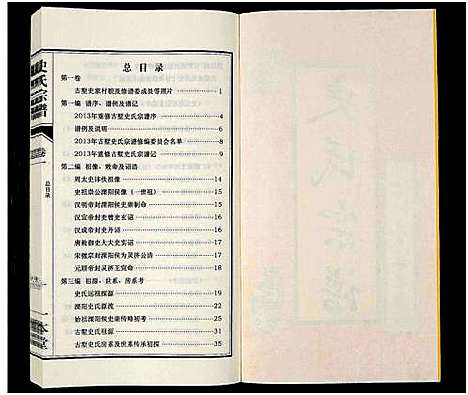 史氏宗譜
总目录
总目录
第一卷
古墅史家村貌及修谱委成员等照片 1
第一编 谱序、谱例及谱记
2013年重修古墅史氏宗谱序 4
谱例及说明 6
2013年古墅史氏宗谱修编委员会名单 8
2013年重修古墅史氏宗谱记 9
第二编 祖像、敕命及诏诰
周太史佚祖像 14
史祖崇公溧阳侯像(一世祖) 14
汉明帝封溧阳侯史崇制命 15
汉宣帝封史曾玄诏 15
汉成帝封史丹诏 15
唐敕御史大夫史宪诏 15
宋徽宗封溧阳侯为灵济公诰 15
元顺帝封灵济王宣命 15
第三编 祖源、世系、房系考
史氏远祖探源 19
溧阳史氏源流 22
始祖溧阳侯史崇传略初考 25
古墅史氏祖源 31
古墅史氏房系及世系传承初探 35